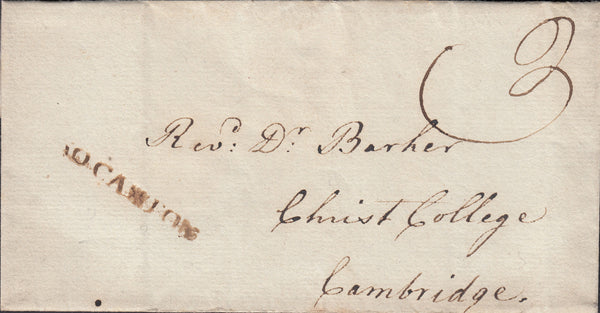 3
Rev.d D.r Barker
Christ College
Cambridge.